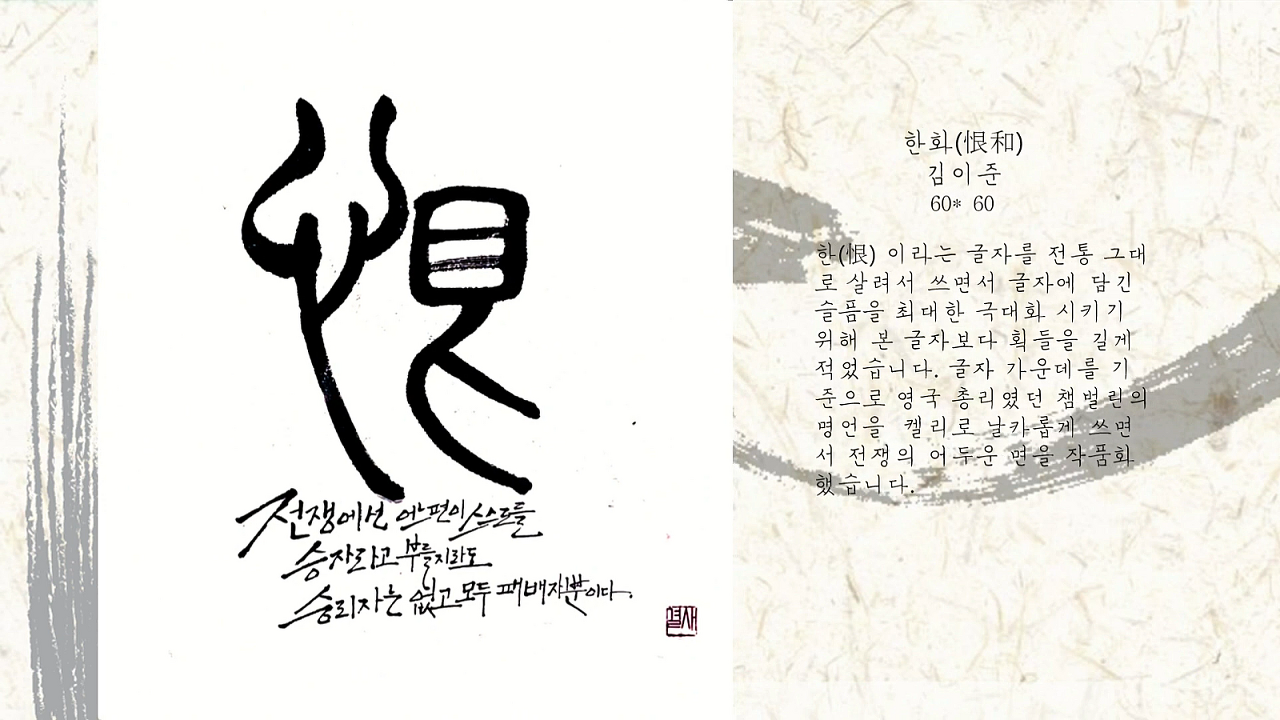 恨
전쟁에선 어느편이 스스로를
승자라고 부를지라도
승리자는 없고 모두 패배자뿐이다.
한화(恨和)
김이준
60* 60
한(恨) 이라는 글자를 전통 그대
로 살려서 쓰면서 글자에 담긴
슬픔을 최대한 극대화 시키기
위해 본 글자보다 획들을 길게
적었습니다. 글자 가운데를 기
준으로 영국 총리였던 챔벌린의
명언을 켈리로 날카롭게 쓰면
서 전쟁의 어두운 면을 작품화
했습니다.